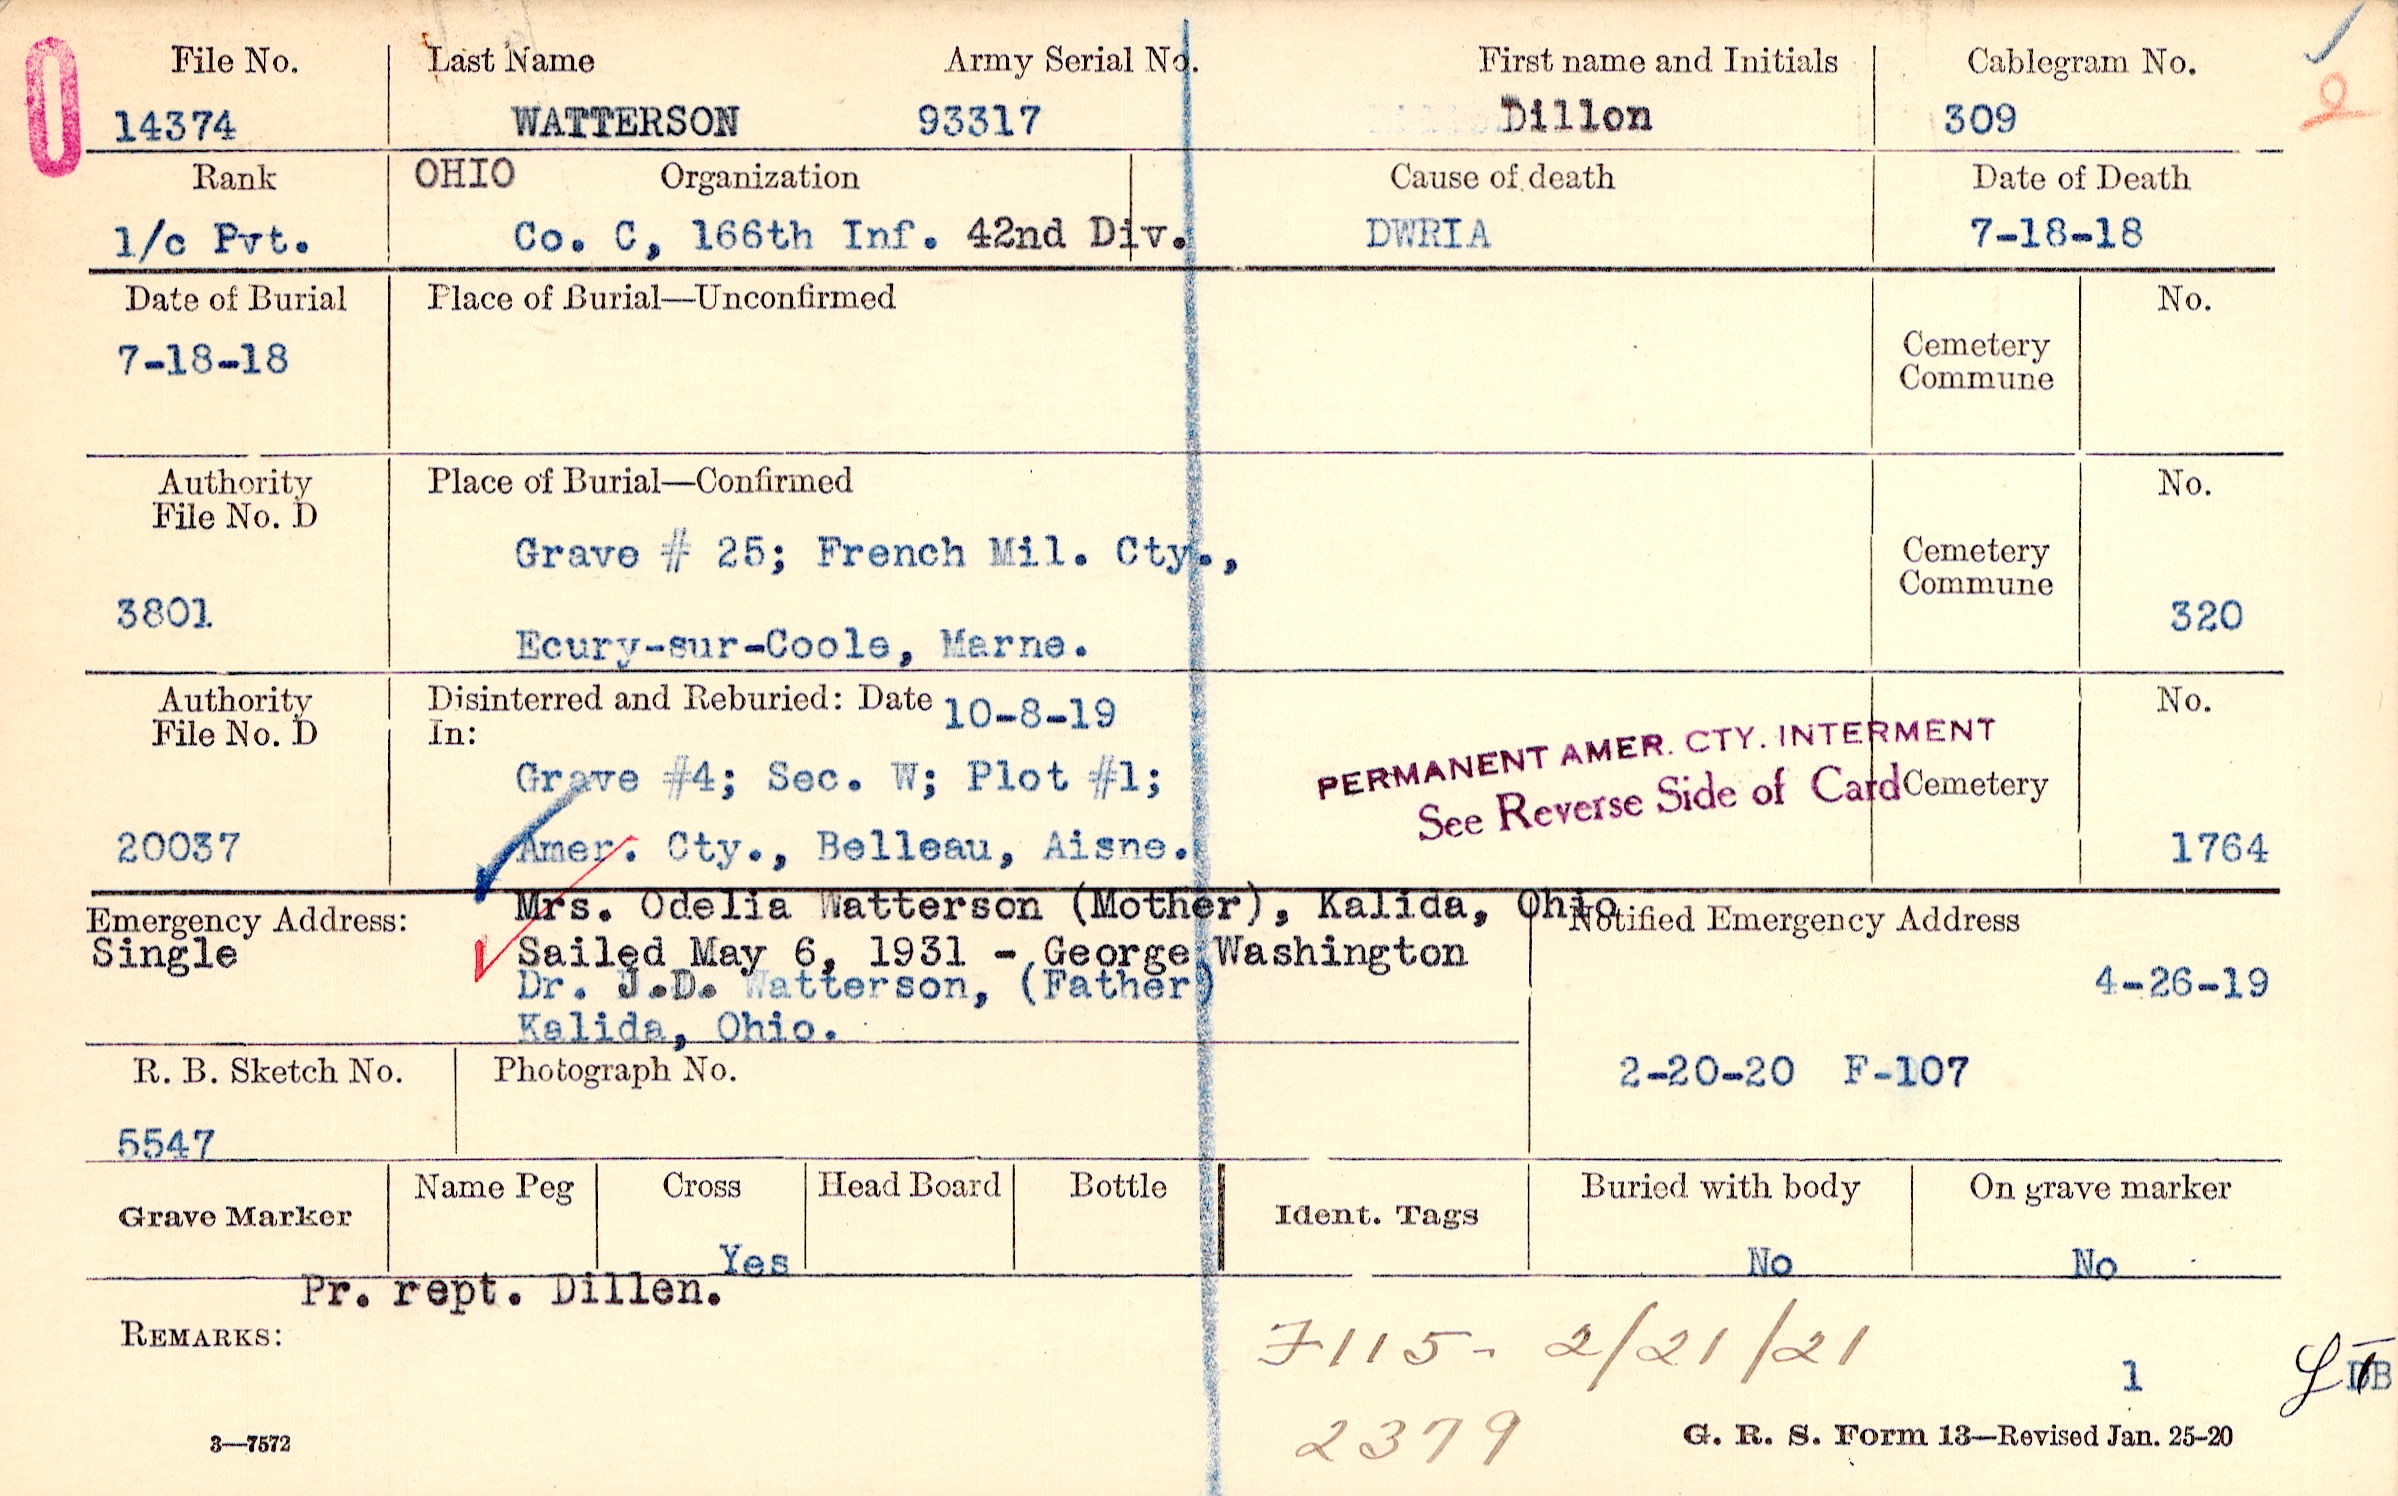 File No. Last Name Army Serial No. First name and Initials Cablegram No.
14374 WATTERSON 93317 Dillon 309
Rank OHIO Organization Cause of death Date of Death
1/c Pvt. Co. C, 166th Inf. 42nd Div. DWRIA 7-18-18
Date of Burial Place of Burial—Unconfirmed No.
7-18-18
Cemetery
Commune
Authority
File No. D
Place of Burial—Confirmed No.
Grave # 25; French Mil. Cty.,
Cemetery
Commune
3801 320
Ecury-sur-Coole, Marne.
Authority
File No. D
Disinterred and Reburied: Date 10-8-19 No.
In:
PERMANENT AMER. CTY. INTERMENT
Grave #4; Sec. W; Plot #1;
See Reverse Side of Card Cemetery
20037 Amer. Cty., Belleau, Aisne. 1764
Mrs. Odelia Watterson (Mother), Kalida, Ohio
Emergency Address: Notified Emergency Address
Single Sailed May 6, 1931 - George Washington
Dr. J.D. Watterson, (Father) 4-26-19
Kalida, Ohio.
R. B. Sketch No. Photograph No. 2-20-20 F-107
5547
Grave Marker Name Peg Cross Head Board Bottle Ident. Tags Buried with body On grave marker
Yes No No
Pr. rept. Dillen.
REMARKS: F115- 2/21/21
1
2379
3—7572 G. R. S. Form 13—Revised Jan. 25-20